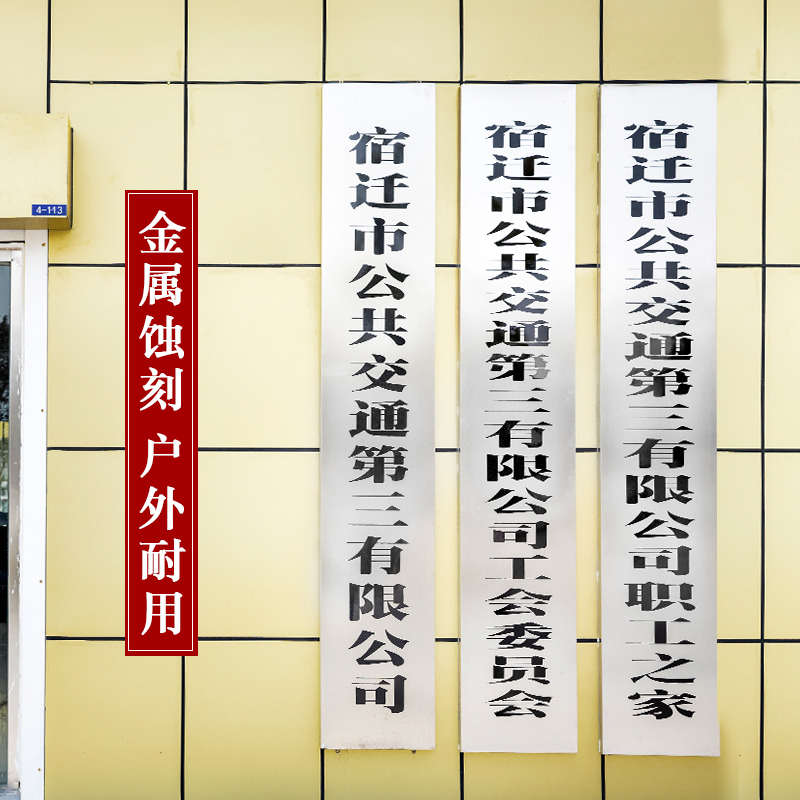 4-113
金属蚀刻 户外耐用
宿迁市公共交通第三有限公司
宿迁市公共交通第三有限公司工会委员会
宿迁市公共交通第三有限公司职工之家